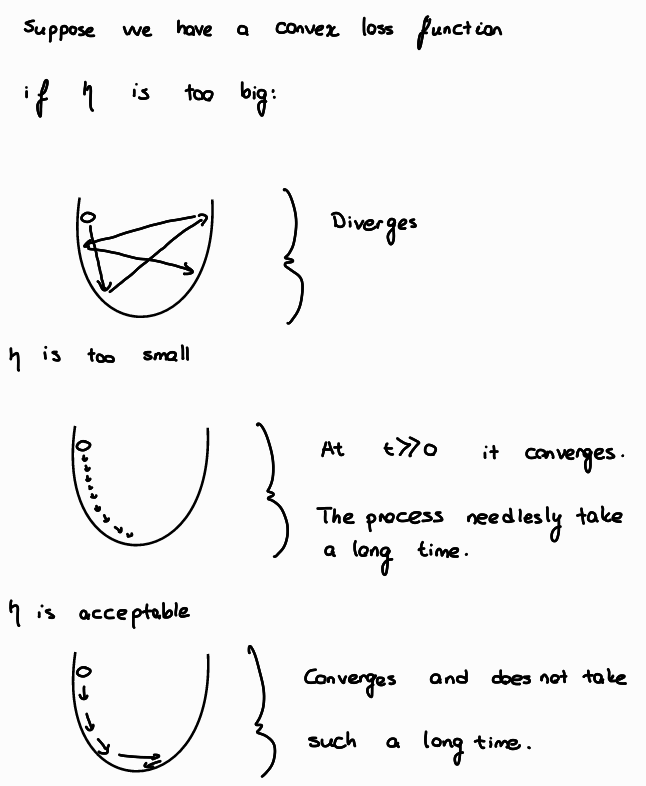 Suppose we have a convex loss function
if η is too big:
Diverges
η is too small
At t≫0 it converges.
The process needlesly take
a long time.
η is acceptable
Converges and does not take
such a long time.